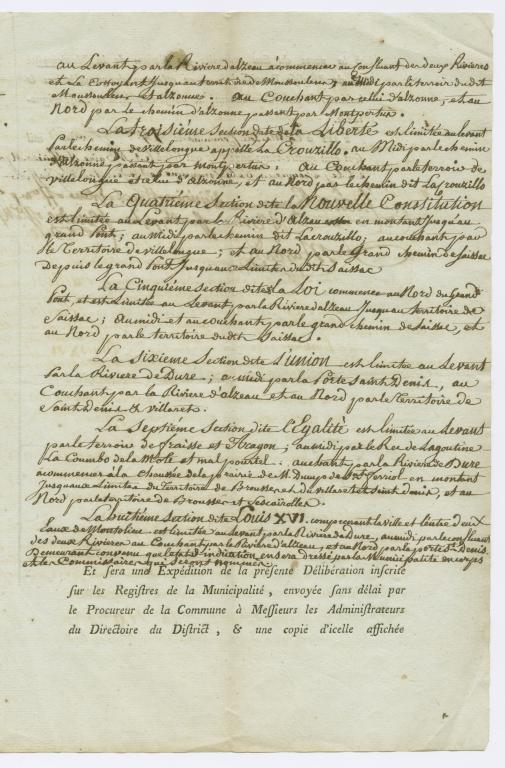 au Levant par la Riviere dalzeau a commencer au Confluant des deux Rivieres
et La Jusquau territoire de Moussoulens, au midi par le terroir dudit
Moussoulens et alzonne. au Couchant par celui d'alzonne, et au
Nord par le chemin d'alzonne passant par Montpertus.
La troisième Section dite de la Liberté est limitée au levant
par le chemin de villelongue appellé La Crouzillo. au Midi par le chemin
d'Alzonne passant par montpertus. au Couchant par le terroir de
villelongue et celui d'Alzonne, et au Nord par le chemin dit La Crouzillo
La Quatrieme Section dite la Nouvelle Constitution
est limitée au Levant par la Riviere d'Alzeau en montant Jusqu'au
grand Pont; au midi par le chemin dit Lacrouzillo; au couchant par
le Territoire de villelongue; et au Nord par le Grand chemin de Saissac
Depuis le grand Pont Jusquau Limites dudit Saissac
La Cinquième Section dite La Loi commence au Nord du Grand
Pont, et est Limitée au Levant par la Riviere dalzeau Jusquau territoire de
Saissac; au midi et au couchant par le grand chemin de Saissac, et
au Nord par le territoire dudit Saissac.
La Sixieme Section dite l'union est limitée au Levant
par la Riviere de Dure; au midi par la Porte Saint Denis, au
Couchant par la Riviere d'alzeau et au Nord par le Territoire de
Saint Denis & villarets.
La Septième Section dite l'Egalité est limitée au Levant
par le terroir de fraisse et Aragon; au midi par le Rec de Lagoutine
La Coumbo de la Mole et mal pourtel. au chant par la Riviere de Dure
a commencer à la chaussée de la prairie de M. en montant
Jusquaux Limites du Territoire de Brousses et du villaret et Saint Denis, et au
Nord par le territoire de Brousses et
La huitième Section dite Louis XVI. comprenant la ville et l'entre deux
Eaux de Montolieu est limitée au Levant par la Riviere de Dure, au midi par le confluant
des deux Rivieres au Couchant par la Riviere d'alzeau, et au Nord par la porte St Denis.
Demeurant convenu que l'etat d'indication en sera dressé par la Municipalité en corps
et les Commissaires qui seront nommés.
Et sera une Expédition de la présente Délibération inscrite
sur les Registres de la Municipalité, envoyée sans délai par
le Procureur de la Commune à Messieurs les Administrateurs
du Directoire du District, & une copie d'icelle affichée